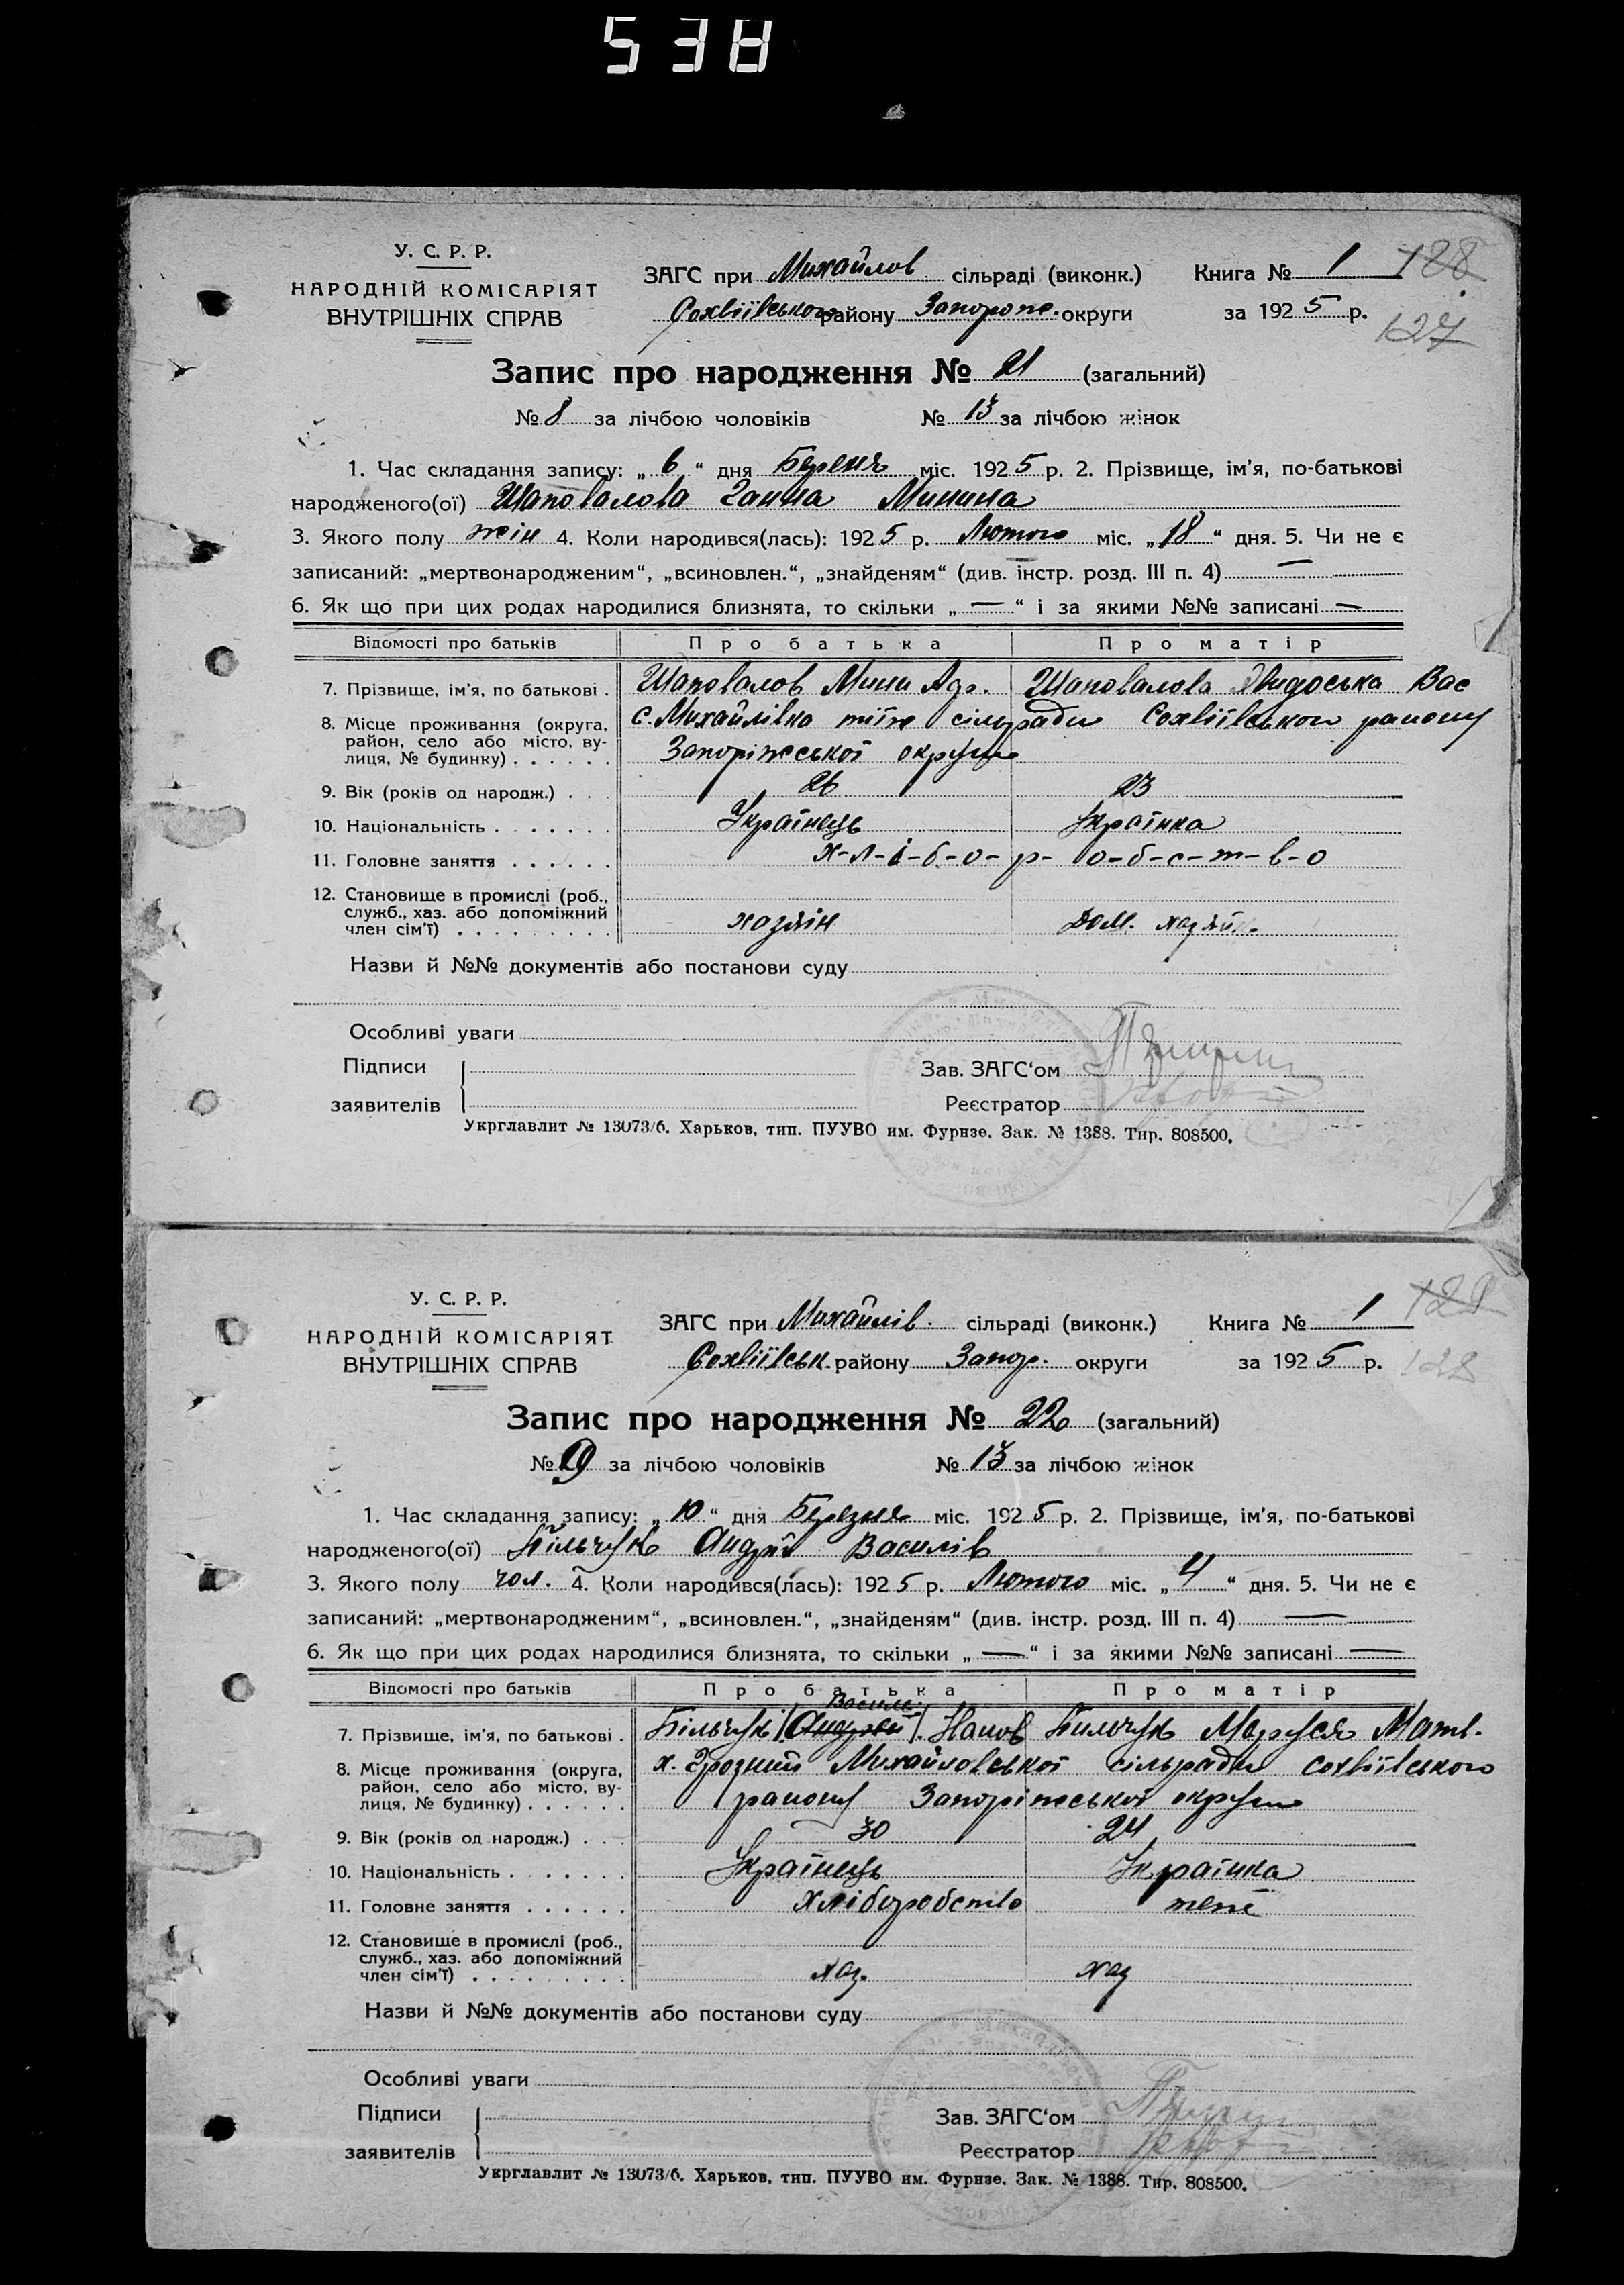 538
У. С. Р. Р.
НАРОДНІЙ КОМІСАРІЯТ
ВНУТРІШНІХ СПРАВ
ЗАГС при Михайлов. сільраді (виконк.) Книга № 1 128
Софіївського району Запорож. округи за 1925 р. 127
Запис про народження № 21 (загальний)
№ 8 за лічбою чоловіків № 13 за лічбою жінок
1. Час складання запису: „6“ дня Березня міс. 1925 р. 2. Прізвище, ім’я, по-батькові
народженого(ої) Шаповалова Ганна Минина
3. Якого полу жін 4. Коли народився(лась): 1925 р. Лютого міс. „18“ дня. 5. Чи не є
записаний: „мертвонародженим“, „всиновлен.“, „знайденям“ (див. інстр. розд. III п. 4) —
6. Як що при цих родах народилися близнята, то скільки „—“ і за якими №№ записані —
Відомості про батьків Про батька Про матір
7. Прізвище, ім’я, по батькові . Шаповалов Мина Шаповалова Вас
8. Місце проживання (округа, с. Михайлівка тіїж сільради Софіївського району
район, село або місто, ву-
лиця, № будинку) . . . . . . Запоріжської округи
9. Вік (років од народж.) . . . 26 23
10. Національність . . . . . . . Українець Українка
11. Головне заняття . . . . . . х-л-і-б-о-р-о-б-с-т-в-о
12. Становище в промислі (роб.,
служб., хаз. або допоміжний
член сім’ї) . . . . . . . . . хазяін Дом. хазяй
Назви й №№ документів або постанови суду
Особливі уваги
Підписи Зав. ЗАГС‘ом
заявителів Реєстратор
Укрглавлит № 13073/б. Харьков, тип. ПУУВО им. Фрунзе. Зак. № 1388. Тир. 808500.
У. С. Р. Р.
НАРОДНІЙ КОМІСАРІЯТ
ВНУТРІШНІХ СПРАВ
ЗАГС при Михайлів. сільраді (виконк.) Книга № 1 129
Софіївськ. району Запор. округи за 1925 р. 128
Запис про народження № 22 (загальний)
№ 9 за лічбою чоловіків № 13 за лічбою жінок
1. Час складання запису: „10“ дня Березня міс. 1925 р. 2. Прізвище, ім’я, по-батькові
народженого(ої) Більчук Андрій Василів
3. Якого полу чол. 4. Коли народився(лась): 1925 р. Лютого міс. „4“ дня. 5. Чи не є
записаний: „мертвонародженим“, „всиновлен.“, „знайденям“ (див. інстр. розд. III п. 4) —
6. Як що при цих родах народилися близнята, то скільки „—“ і за якими №№ записані —
Відомості про батьків Про батька Про матір
Василь
7. Прізвище, ім’я, по батькові . Більчук Андрей Більчук Маруся Матв.
8. Місце проживання (округа, х. Грозний Михайловської сільради Софіївського
район, село або місто, ву-
лиця, № будинку) . . . . . . району Запоріжської округи
9. Вік (років од народж.) . . . 30 24
10. Національність . . . . . . . Українець Українка
11. Головне заняття . . . . . . хліборобство теж
12. Становище в промислі (роб.,
служб., хаз. або допоміжний
член сім’ї) . . . . . . . . . хаз. хаз
Назви й №№ документів або постанови суду
Особливі уваги
Підписи Зав. ЗАГС‘ом
заявителів Реєстратор
Укрглавлит № 13073/б. Харьков, тип. ПУУВО им. Фрунзе. Зак. № 1388. Тир. 808500.